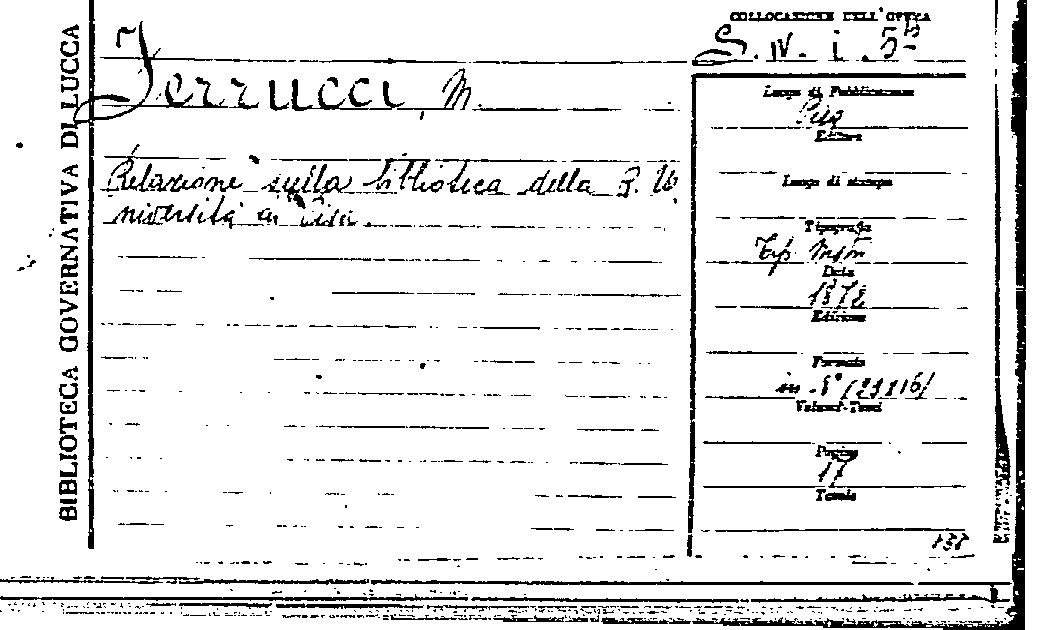 BIBLIOTECA GOVERNATIVA DI LUCCA
Ferrucci, M.
Relazione sulla biblioteca della R. U.
niversità di Pisa.
COLLOCAZIONE DELL'OPERA
S. IV. i. 5
Luogo di Pubblicazione
Pisa
Editore
Luogo di stampa
Tipografia
Tip.
Data
1872
Edizione
Formato
in 8°
Volumi-Tomi
Pagine
17
Tavole